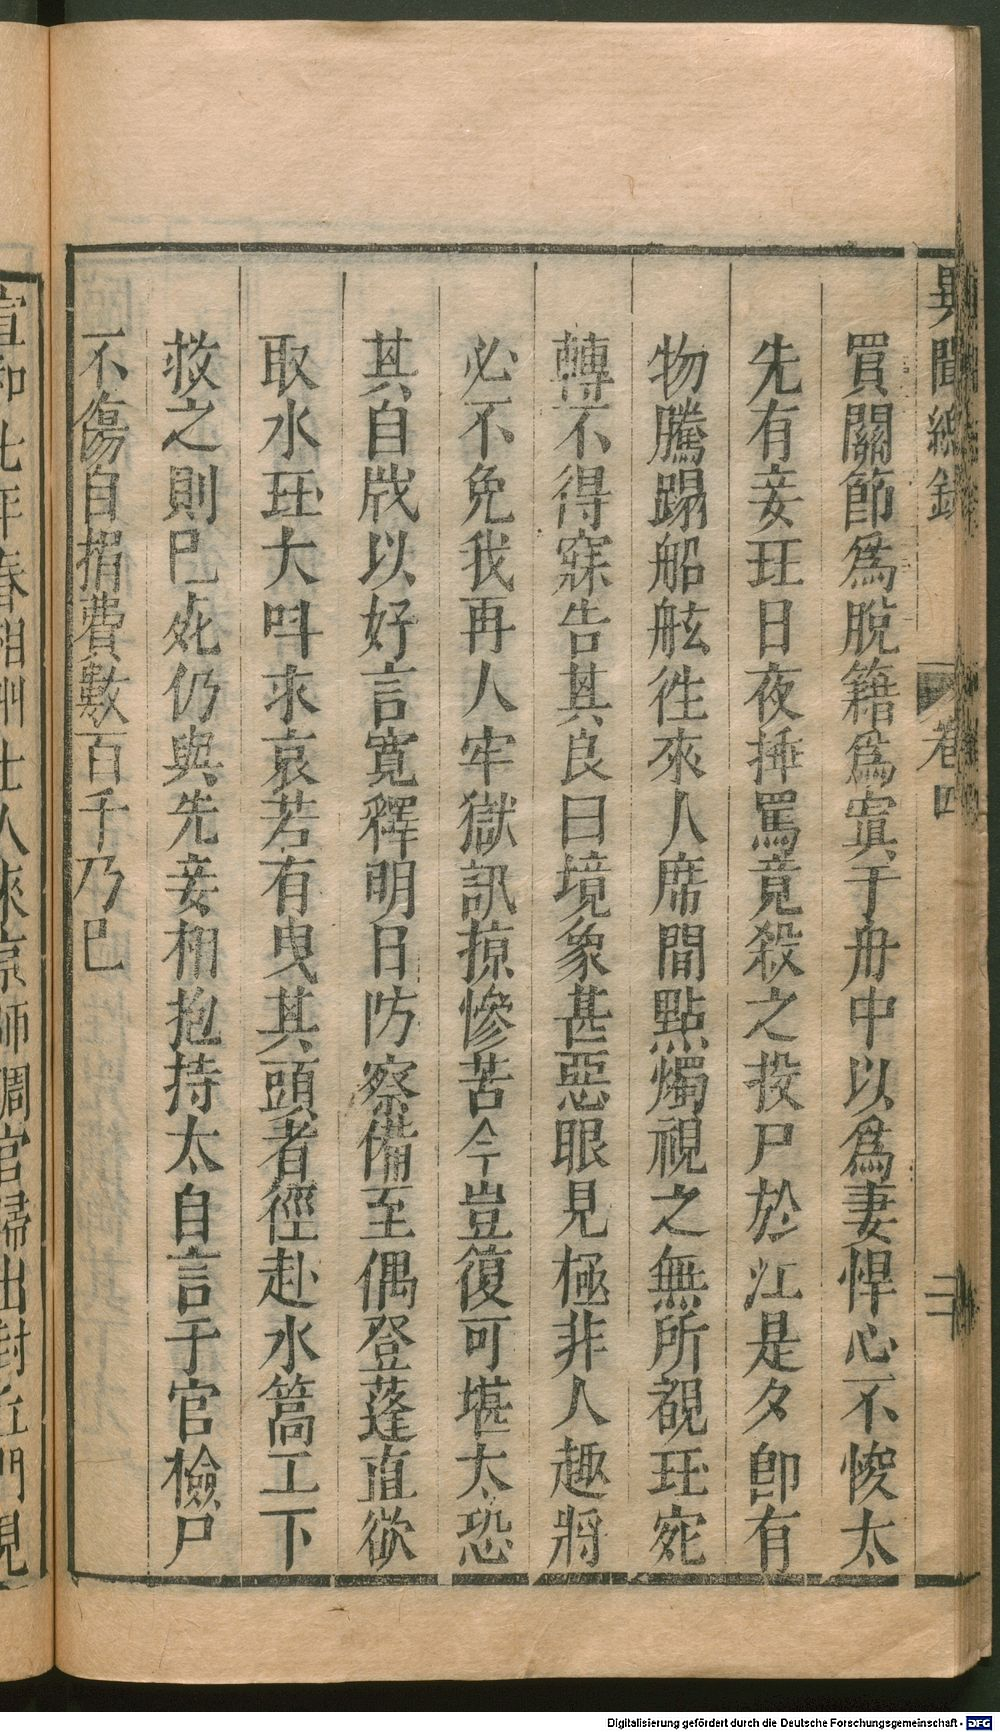 異聞總錄
卷四
二十
買關節爲脫籍爲寘于舟中以爲妻悍心不悛太
先有妾玨日夜捶罵竟殺之投尸於江是夕卽有
物騰踢船舷徃來人席間點燭視之無所覩玨宛
轉不得寐告其良曰境象甚惡眼見極非人趣將
必不免我再人牢獄訊掠慘苦今豈復可堪太恐
其自戕以好言寬釋明日防察備至偶登蓬直欲
取水玨大呌求哀若有曳其頭者徑赴水篙工下
救之則已死仍與先妾相抱持太自言于官檢尸
不傷自捐費數百千乃已
宣和七年春相州士人來京師調官歸出封丘門見
Digitalisierung gefördert durch die Deutsche Forschungsgemeinschaft - DFG